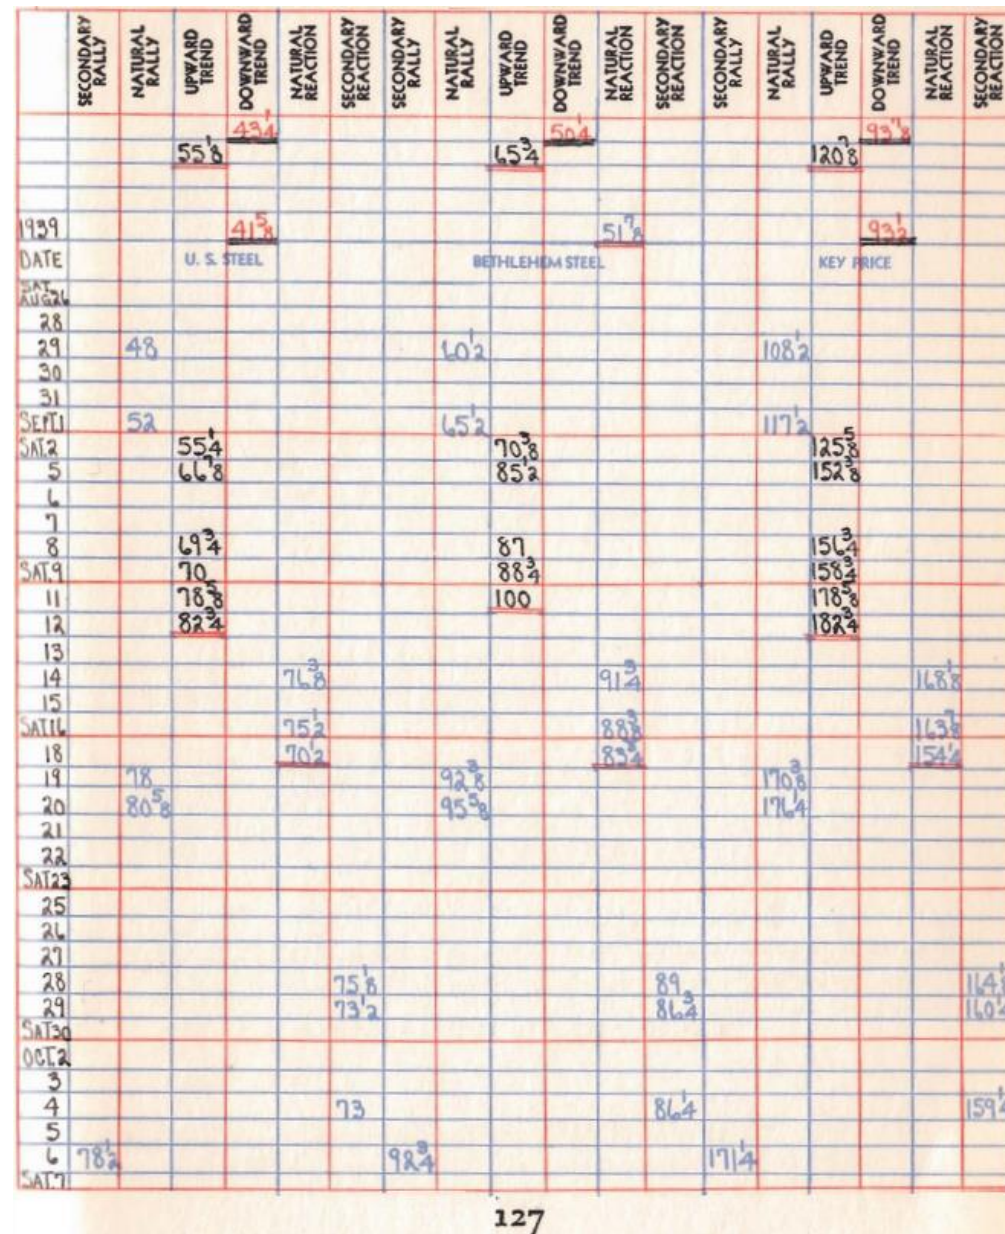 SECONDARY RALLY NATURAL RALLY UPWARD TREND DOWNWARD TREND NATURAL REACTION SECONDARY REACTION SECONDARY RALLY NATURAL RALLY UPWARD TREND DOWNWARD TREND NATURAL REACTION SECONDARY REACTION SECONDARY RALLY NATURAL RALLY UPWARD TREND DOWNWARD TREND NATURAL REACTION SECONDARY REACTION
43 1/4 50 1/4 93 7/8
55 1/8 65 3/4 120 7/8
1939 41 5/8 51 7/8 93 1/2
DATE U. S. STEEL BETHLEHEM STEEL KEY PRICE
SAT. AUG.26
28
29 48 60 1/2 108 1/2
30
31
SEPT.1 52 65 1/2 117 1/2
SAT.2 55 1/4 70 3/8 125 5/8
5 66 7/8 85 1/2 152 3/8
6
7
8 69 3/4 87 156 3/4
SAT.9 70 88 3/4 158 3/4
11 78 5/8 100 178 5/8
12 82 3/4 182 3/4
13
14 76 3/8 91 3/4 168 1/8
15
SAT.16 75 1/2 88 3/8 163 7/8
18 70 1/2 83 3/4 154 1/4
19 78 92 3/8 170 3/8
20 80 5/8 95 5/8 176 1/4
21
22
SAT.23
25
26
27
28 75 1/8 89 164 1/8
29 73 1/2 86 3/4 160 1/4
SAT.30
OCT.2
3
4 73 86 1/4 159 1/4
5
6 78 1/2 92 3/4 171 1/4
SAT.7
127